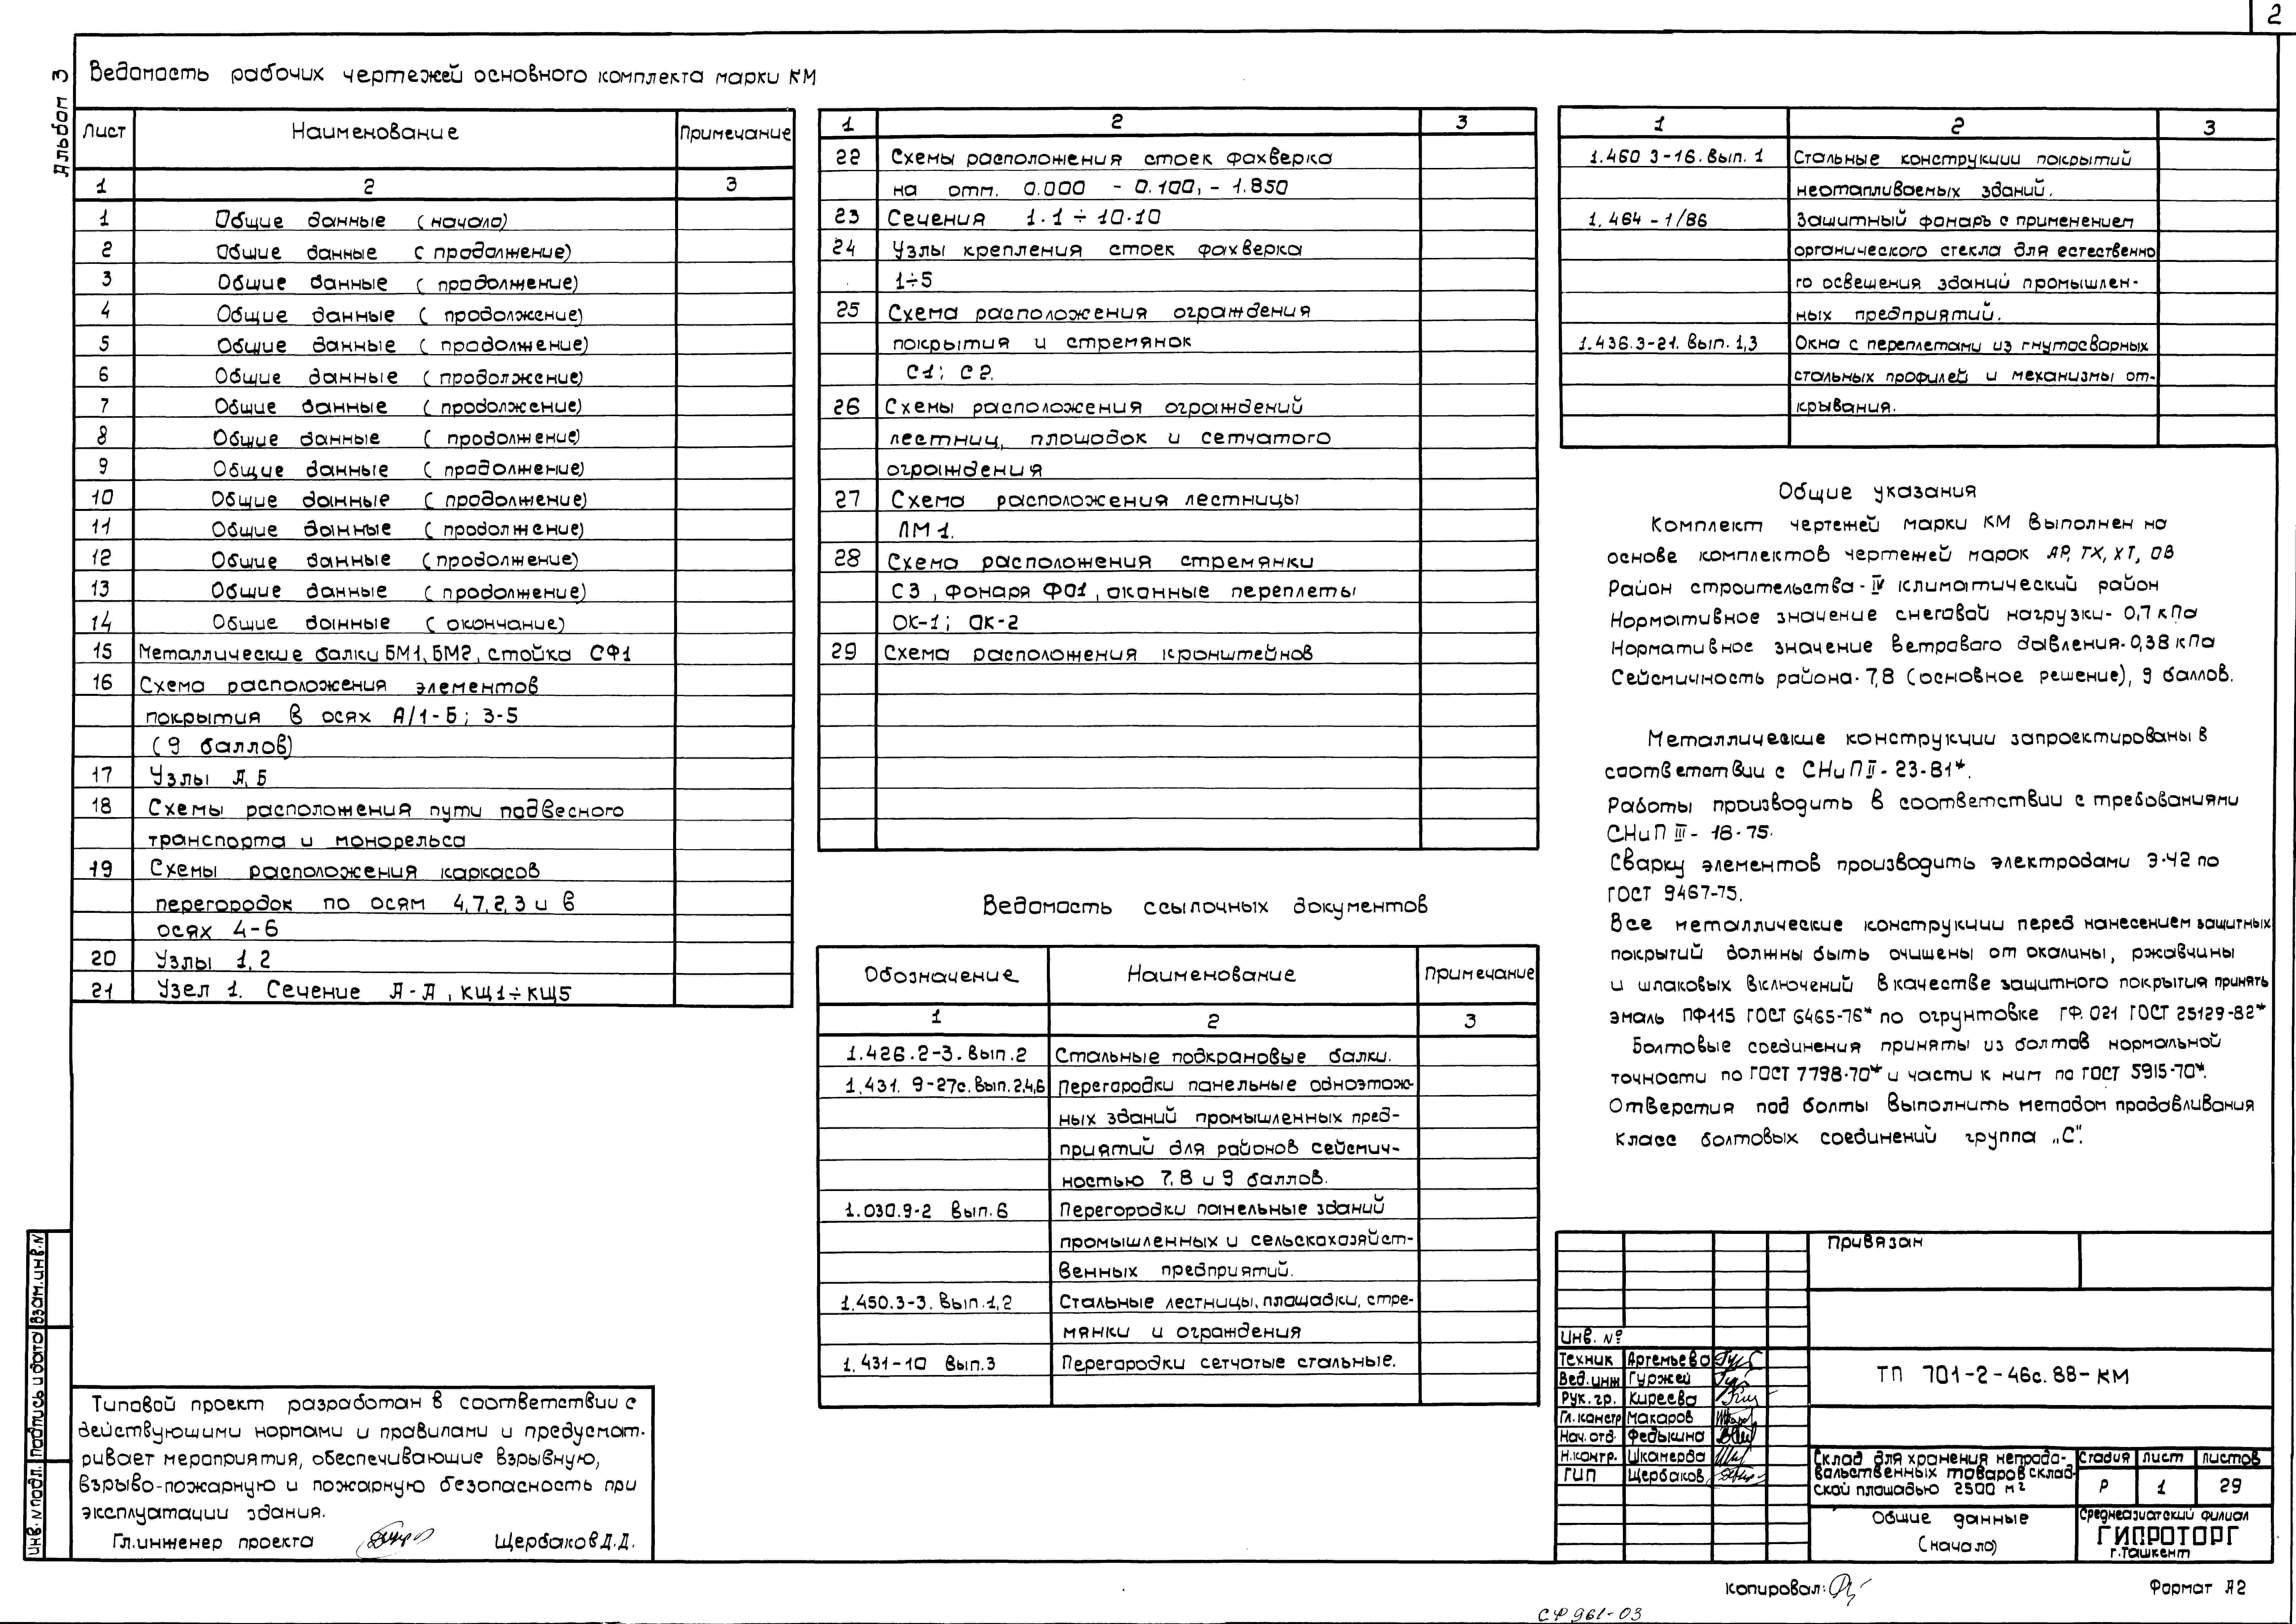 2
Альбом 3
Ведомость рабочих чертежей основного комплекта марки КМ
Лист Наименование Примечание
1 2 3
1 Общие данные (начало)
2 Общие данные (продолжение)
3 Общие данные (продолжение)
4 Общие данные (продолжение)
5 Общие данные (продолжение)
6 Общие данные (продолжение)
7 Общие данные (продолжение)
8 Общие данные (продолжение)
9 Общие данные (продолжение)
10 Общие данные (продолжение)
11 Общие данные (продолжение)
12 Общие данные (продолжение)
13 Общие данные (продолжение)
14 Общие данные (окончание)
15 Металлические балки БМ1, БМ2, стойка СФ1
16 Схема расположения элементов
покрытия в осях А/1-Б; 3-5
(9 баллов)
17 Узлы А, Б
18 Схемы расположения пути подвесного
транспорта и монорельса
19 Схемы расположения каркасов
перегородок по осям 4,7,2,3 и в
осях 4-6
20 Узлы 1,2
21 Узел 1. Сечение А-А, КЩ1÷КЩ5
1 2 3
22 Схемы расположения стоек фахверка
на отм. 0.000 -0.100, -1.850
23 Сечения 1.1÷10.10
24 Узлы крепления стоек фахверка
1÷5
25 Схема расположения ограждения
покрытия и стремянок
С1; С2.
26 Схемы расположения ограждений
лестниц, площадок и сетчатого
ограждения
27 Схема расположения лестницы
ЛМ1.
28 Схема расположения стремянки
С3, фонаря Ф01, оконные переплеты
ОК-1; ОК-2
29 Схема расположения кронштейнов
Ведомость ссылочных документов
Обозначение Наименование Примечание
1 2 3
1.426.2-3. вып.2 Стальные подкрановые балки.
1.431. 9-27с. вып.2,4,6 Перегородки панельные одноэтаж-
ных зданий промышленных пред-
приятий для районов сейсмич-
ностью 7,8 и 9 баллов.
1.030.9-2 вып.6 Перегородки панельные зданий
промышленных и сельскохозяйст-
венных предприятий.
1.450.3-3. вып.1,2 Стальные лестницы, площадки, стре-
мянки и ограждения
1.431-10 вып.3 Перегородки сетчатые стальные.
1 2 3
1.460 3-16. вып. 1 Стальные конструкции покрытий
неотапливаемых зданий.
1. 464-1/86 Защитный фонарь с применением
органического стекла для естественно
го освещения зданий промышлен-
ных предприятий.
1.436.3-21. вып. 1,3 Окна с переплетами из гнутосварных
стальных профилей и механизмы от-
крывания.
Общие указания
Комплект чертежей марки КМ выполнен на
основе комплектов чертежей марок АР, ТХ, ХТ, ОВ
Район строительства - IV климатический район
Нормативное значение снеговой нагрузки- 0,7 кПа
Нормативное значение ветрового давления- 0,38 кПа
Сейсмичность района- 7,8 (основное решение), 9 баллов.
Металлические конструкции запроектированы в
соответствии с СНиП II-23-81*.
Работы производить в соответствии с требованиями
СНиП III-18-75.
Сварку элементов производить электродами Э-42 по
ГОСТ 9467-75.
Все металлические конструкции перед нанесением защитных
покрытий должны быть очищены от окалины, ржавчины
и шлаковых включений в качестве защитного покрытия принять
эмаль ПФ115 ГОСТ 6465-76* по огрунтовке ГФ.021 ГОСТ 25129-82*
Болтовые соединения приняты из болтов нормальной
точности по ГОСТ 7798-70* и части к ним по ГОСТ 5915-70*.
Отверстия под болты выполнить методом продавливания
Класс болтовых соединений группа „С".
Типовой проект разработан в соответствии с
действующими нормами и правилами и предусмат-
ривает мероприятия, обеспечивающие взрывную,
взрыво-пожарную и пожарную безопасность при
эксплуатации здания.
Гл.инженер проекта Щербаков Д.Д.
Инв. N подл. Подпись и дата Взам.инв.N
Привязан
Инв. №
Техник Артемьева
Вед.инж Гуржей
Рук.гр. Киреева
Гл.констр Макаров
Нач.отд. Федькина
Н.контр. Шкамерда
ГИП Щербаков
ТП 701-2-46с.88-КМ
Склад для хранения непродо-
вольственных товаров склад-
ской площадью 2500 м²
Стадия Лист Листов
Р 1 29
Общие данные
(начало)
Среднеазиатский филиал
ГИПРОТОРГ
г.Ташкент
Копировал:
Формат А2
СФ 961-03